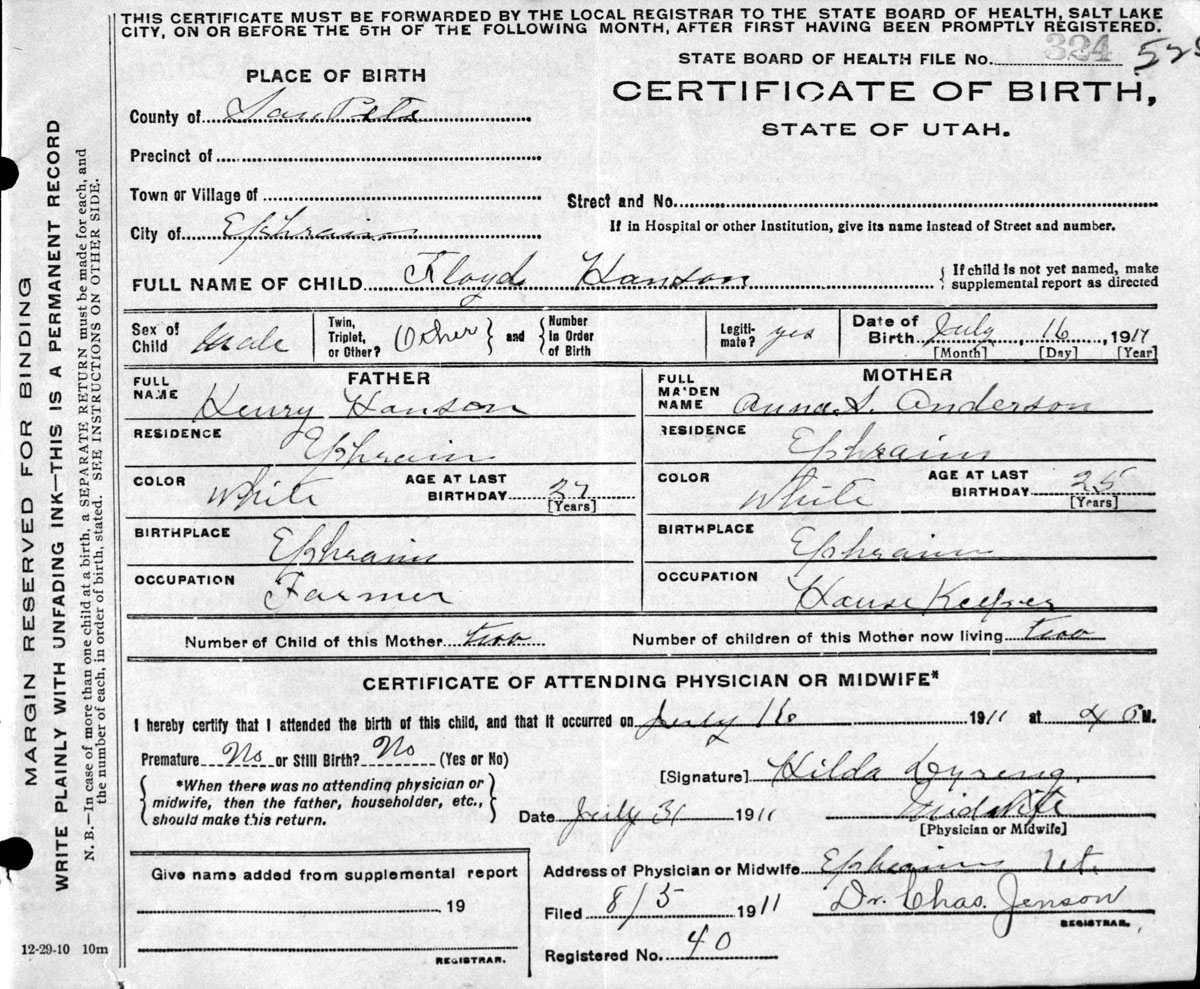 THIS CERTIFICATE MUST BE FORWARDED BY THE LOCAL REGISTRAR TO THE STATE BOARD OF HEALTH, SALT LAKE
CITY, ON OR BEFORE THE 5TH OF THE FOLLOWING MONTH, AFTER FIRST HAVING BEEN PROMPTLY REGISTERED.
STATE BOARD OF HEALTH FILE No. 324
PLACE OF BIRTH
CERTIFICATE OF BIRTH,
STATE OF UTAH.
County of San Pete
Precinct of
Town or Village of
Street and No.
City of Ephraim
If in Hospital or other Institution, give its name instead of Street and number.
FULL NAME OF CHILD Floyd Hanson { If child is not yet named, make
supplemental report as directed
Sex of Child Male
Twin, Triplet, or Other? Other } and { Number in Order of Birth
Legitimate? yes
Date of Birth July, 16, 1911
[Month] [Day] [Year]
FATHER
FULL NAME Henry Hanson
RESIDENCE Ephraim
COLOR White AGE AT LAST BIRTHDAY 37
[Years]
BIRTHPLACE Ephraim
OCCUPATION Farmer
MOTHER
FULL MAIDEN NAME Anna S. Anderson
RESIDENCE Ephraim
COLOR White AGE AT LAST BIRTHDAY 25
[Years]
BIRTHPLACE Ephraim
OCCUPATION House Keeper
Number of Child of this Mother two Number of children of this Mother now living two
CERTIFICATE OF ATTENDING PHYSICIAN OR MIDWIFE*
I hereby certify that I attended the birth of this child, and that it occurred on July 16 1911 at 4 M.
Premature No or Still Birth? No (Yes or No)
[Signature] Hilda Dyreng
*When there was no attending physician or
midwife, then the father, householder, etc.,
should make this return.
Date July 31 1911 Midwife
[Physician or Midwife]
Give name added from supplemental report
19
REGISTRAR.
Address of Physician or Midwife Ephraim Ut.
Filed 8/5 1911 Dr. Chas. Jenson
REGISTRAR.
Registered No. 40
12-29-10 10m
MARGIN RESERVED FOR BINDING
WRITE PLAINLY WITH UNFADING INK—THIS IS A PERMANENT RECORD
N. B.—In case of more than one child at a birth, a SEPARATE RETURN must be made for each, and
the number of each, in order of birth, stated. SEE INSTRUCTIONS ON OTHER SIDE.